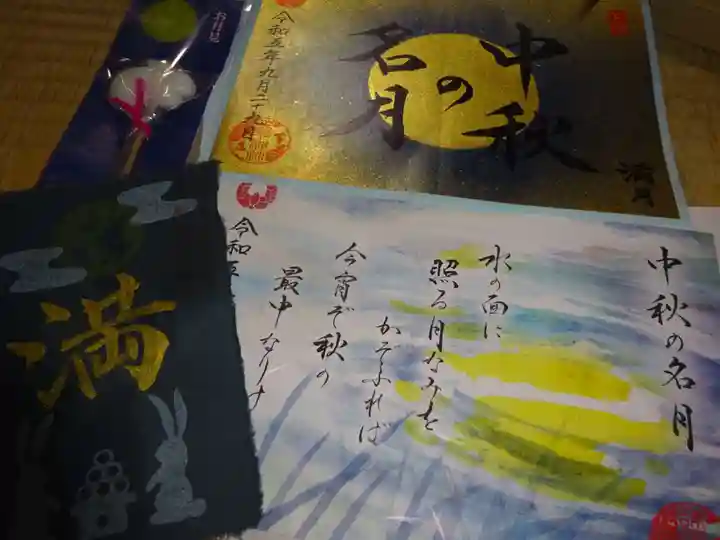 おはけ
中秋
の
名月
満月
令和五年九月二十九日
満
中秋の名月
水の面に
照る月なみを
かぞふれば
今宵ぞ秋の
最中なりけ
令和五